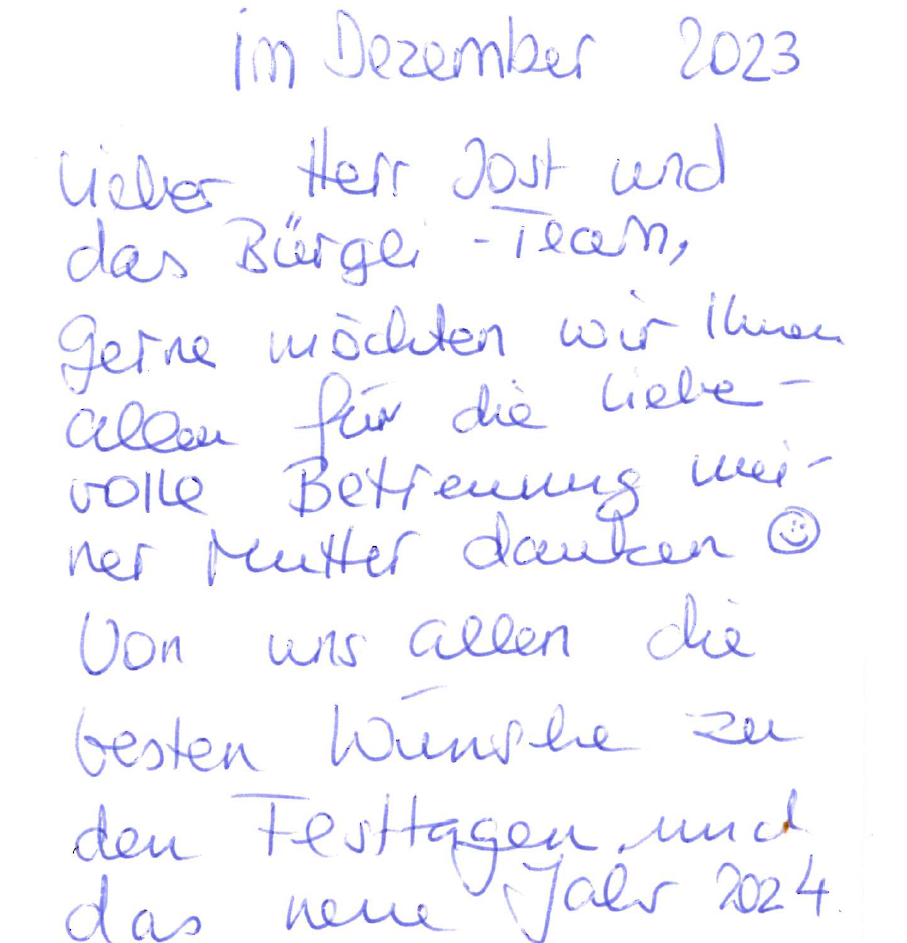 im Dezember 2023
Lieber Herr Jost und
das Bürgli-Team,
gerne möchten wir Ihnen
allen für die liebe-
volle Betreuung mei-
ner Mutter danken ☺
Von uns allen die
besten Wünsche zu
den Festtagen und
das neue Jahr 2024.